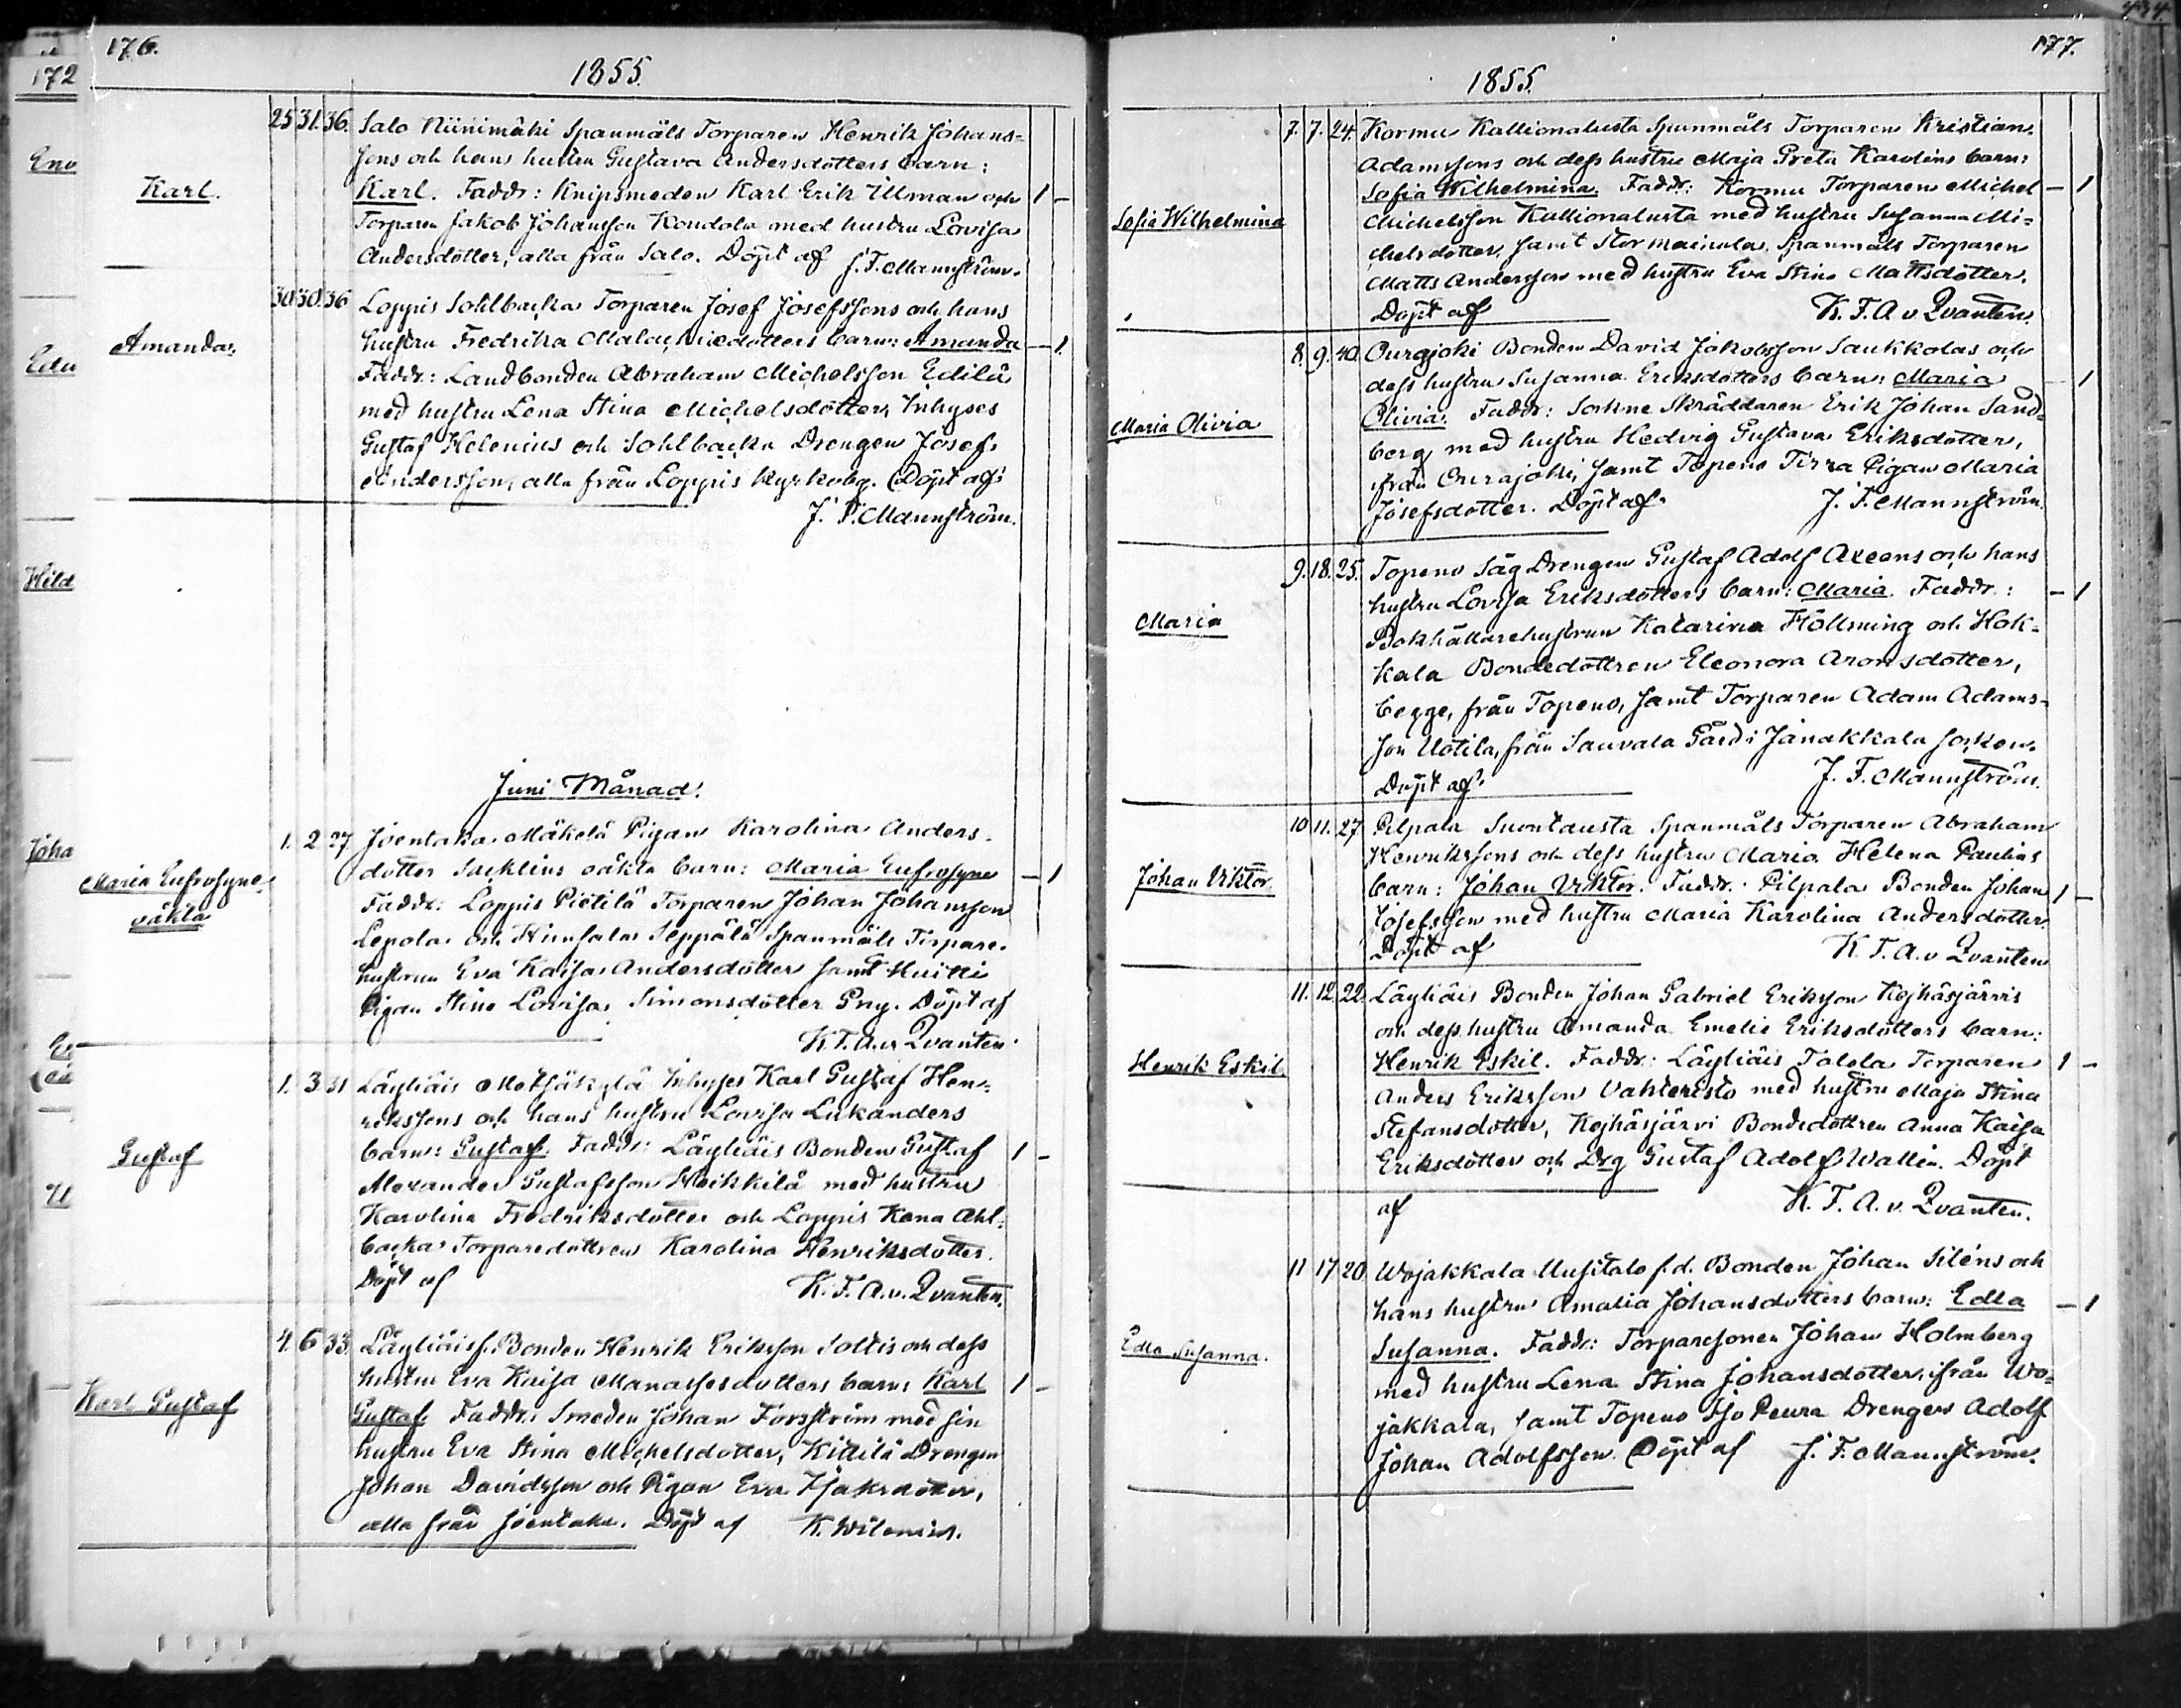 176.
1855.
25 31. 36. Salo Niinimäki Spanmåls Torparen Henrik Johans-
sons och hans hustru Gustava Andersdotters barn:
Karl. Karl. Faddr: Knipsmeden Karl Erik Ulman och 1 -
Torparen Jakob Johansson Kondola med hustru Lovisa
Andersdotter, alla från Salo. Döpt af J. F. Mannström.
30 30. 36 Loppis Sohlbacka Torparen Josef Josefssons och hans
Amanda. hustru Fredrika Malachiædotters barn: Amanda - 1.
Faddr: Landbonden Abraham Michelsson Edilä
med hustru Lena Stina Michelsdotter, Inhyses
Gustaf Helenius och Sohlbacka Drengen Josef
Andersson, alla från Loppis kyrkoby. Döpt af
J. F. Mannström.
Juni Månad.
1. 2. 27 Joentaka Mäkelä Pigan Karolina Anders-
Maria Eufrosyne dotter oäkta barn: Maria Eufrosyne - 1
oäkta Faddr: Loppis Pietilä Torparen Johan Johansson
Lepola och Hunsala Seppälä Spanmåls Torpare
hustrun Eva Kaisa Andersdotter samt
Pigan Stina Lovisa Simonsdotter. Döpt af
K. F. A. v. Qvanten.
1. 3 31 Läyliäis Metsäkylä Inhyses Karl Gustaf Hen-
rikssons och hans hustru Lovisa Lukanders
Gustaf barn: Gustaf. Faddr: Läyliäis Bonden Gustaf 1 -
Alexander Gustafsson Heikkilä med hustru
Karolina Fredriksdotter och Loppis Kana Ahl-
backa Torparedottren Karolina Henriksdotter.
Döpt af K. F. A. v. Qvanten.
4. 6 33. Läyliäis f. Bonden Henrik Eriksson Soltis och dess
hustru Eva Kaisa Manassesdotters barn: Karl 1 -
Karl Gustaf Gustaf. Faddr: Smeden Johan Forsström med sin
hustru Eva Stina Michelsdotter, Kittilä Drengen
Johan Davidsson och Pigan Eva Isaksdotter,
alla från Joentaka. Döpt af K. Wilenius.
177.
1855.
7. 7. 24. Kormu Kallionalusta Spanmåls Torparen Kristian
Adamssons och dess hustru Maja Greta Karolins barn:
Sofia Wilhelmina. Faddr: Kormu Torparen Michel - 1
Sofia Wilhelmina Michelsson Kallionalusta med hustru Susanna Mi-
chelsdotter, samt Stor Spanmåls Torparen
Matts Andersson med hustru Eva Stina Mattsdotter.
Döpt af K. F. A v Qvanten.
8. 9. 40. Ourajoki Bonden David Jakobsson Saukkolas och
dess hustru Susanna Eriksdotters barn: Maria - 1
Maria Olivia Olivia. Faddr: Sockne Skräddaren Erik Johan Sand-
berg med hustru Hedvig Gustava Eriksdotter,
från Ourajoki, samt Topeno Tirra Pigan Maria
Josefsdotter. Döpt af J. F. Mannström
9. 18. 25. Topeno Såg Drengen Gustaf Adolf Axeens och hans
hustru Lovisa Eriksdotters barn: Maria. Faddr: - 1
Maria Bokhållarehustrun Katarina Höllming och Hok-
kala Bondedottren Eleonora Aronsdotter,
begge från Topeno, samt Torparen Adam Adams-
son Uotila, från Sauvala Gård i Janakkala socken.
Döpt af J. F. Mannström.
10 11. 27 Pilpala Suontausta Spanmåls Torparen Abraham
Henrikssons och dess hustru Maria Helena Paulins
Johan Viktor. barn: Johan Viktor. Faddr: Pilpala Bonden Johan 1 -
Josefsson med hustru Maria Karolina Andersdotter.
Döpt af K. F. A. v Qvanten
11. 12. 22. Läyliäis Bonden Johan Gabriel Eriksson Kojhäsjärvis
och dess hustru Amanda Emelie Eriksdotters barn:
Henrik Eskil. Henrik Eskil. Faddr: Läyliäis Talola Torparen 1 -
Anders Eriksson Vahteristo med hustru Maja Stina
Stefansdotter, Kojhäsjärvi Bondedottren Anna Kaisa
Eriksdotter och Drg Gustaf Adolf Wallin. Döpt
af K. F. A. v. Qvanten.
11 17 20 Wojakkala Uusitalo f. d. Bonden Johan Siléns och
hans hustru Amalia Johansdotters barn: Edla - 1
Edla Susanna. Susanna. Faddr: Torparesonen Johan Holmberg
med hustru Lena Stina Johansdotter, ifrån Wo-
jakkala, samt Topeno Iso Peura Drengen Adolf
Johan Adolfsson. Döpt af J. F. Mannström.